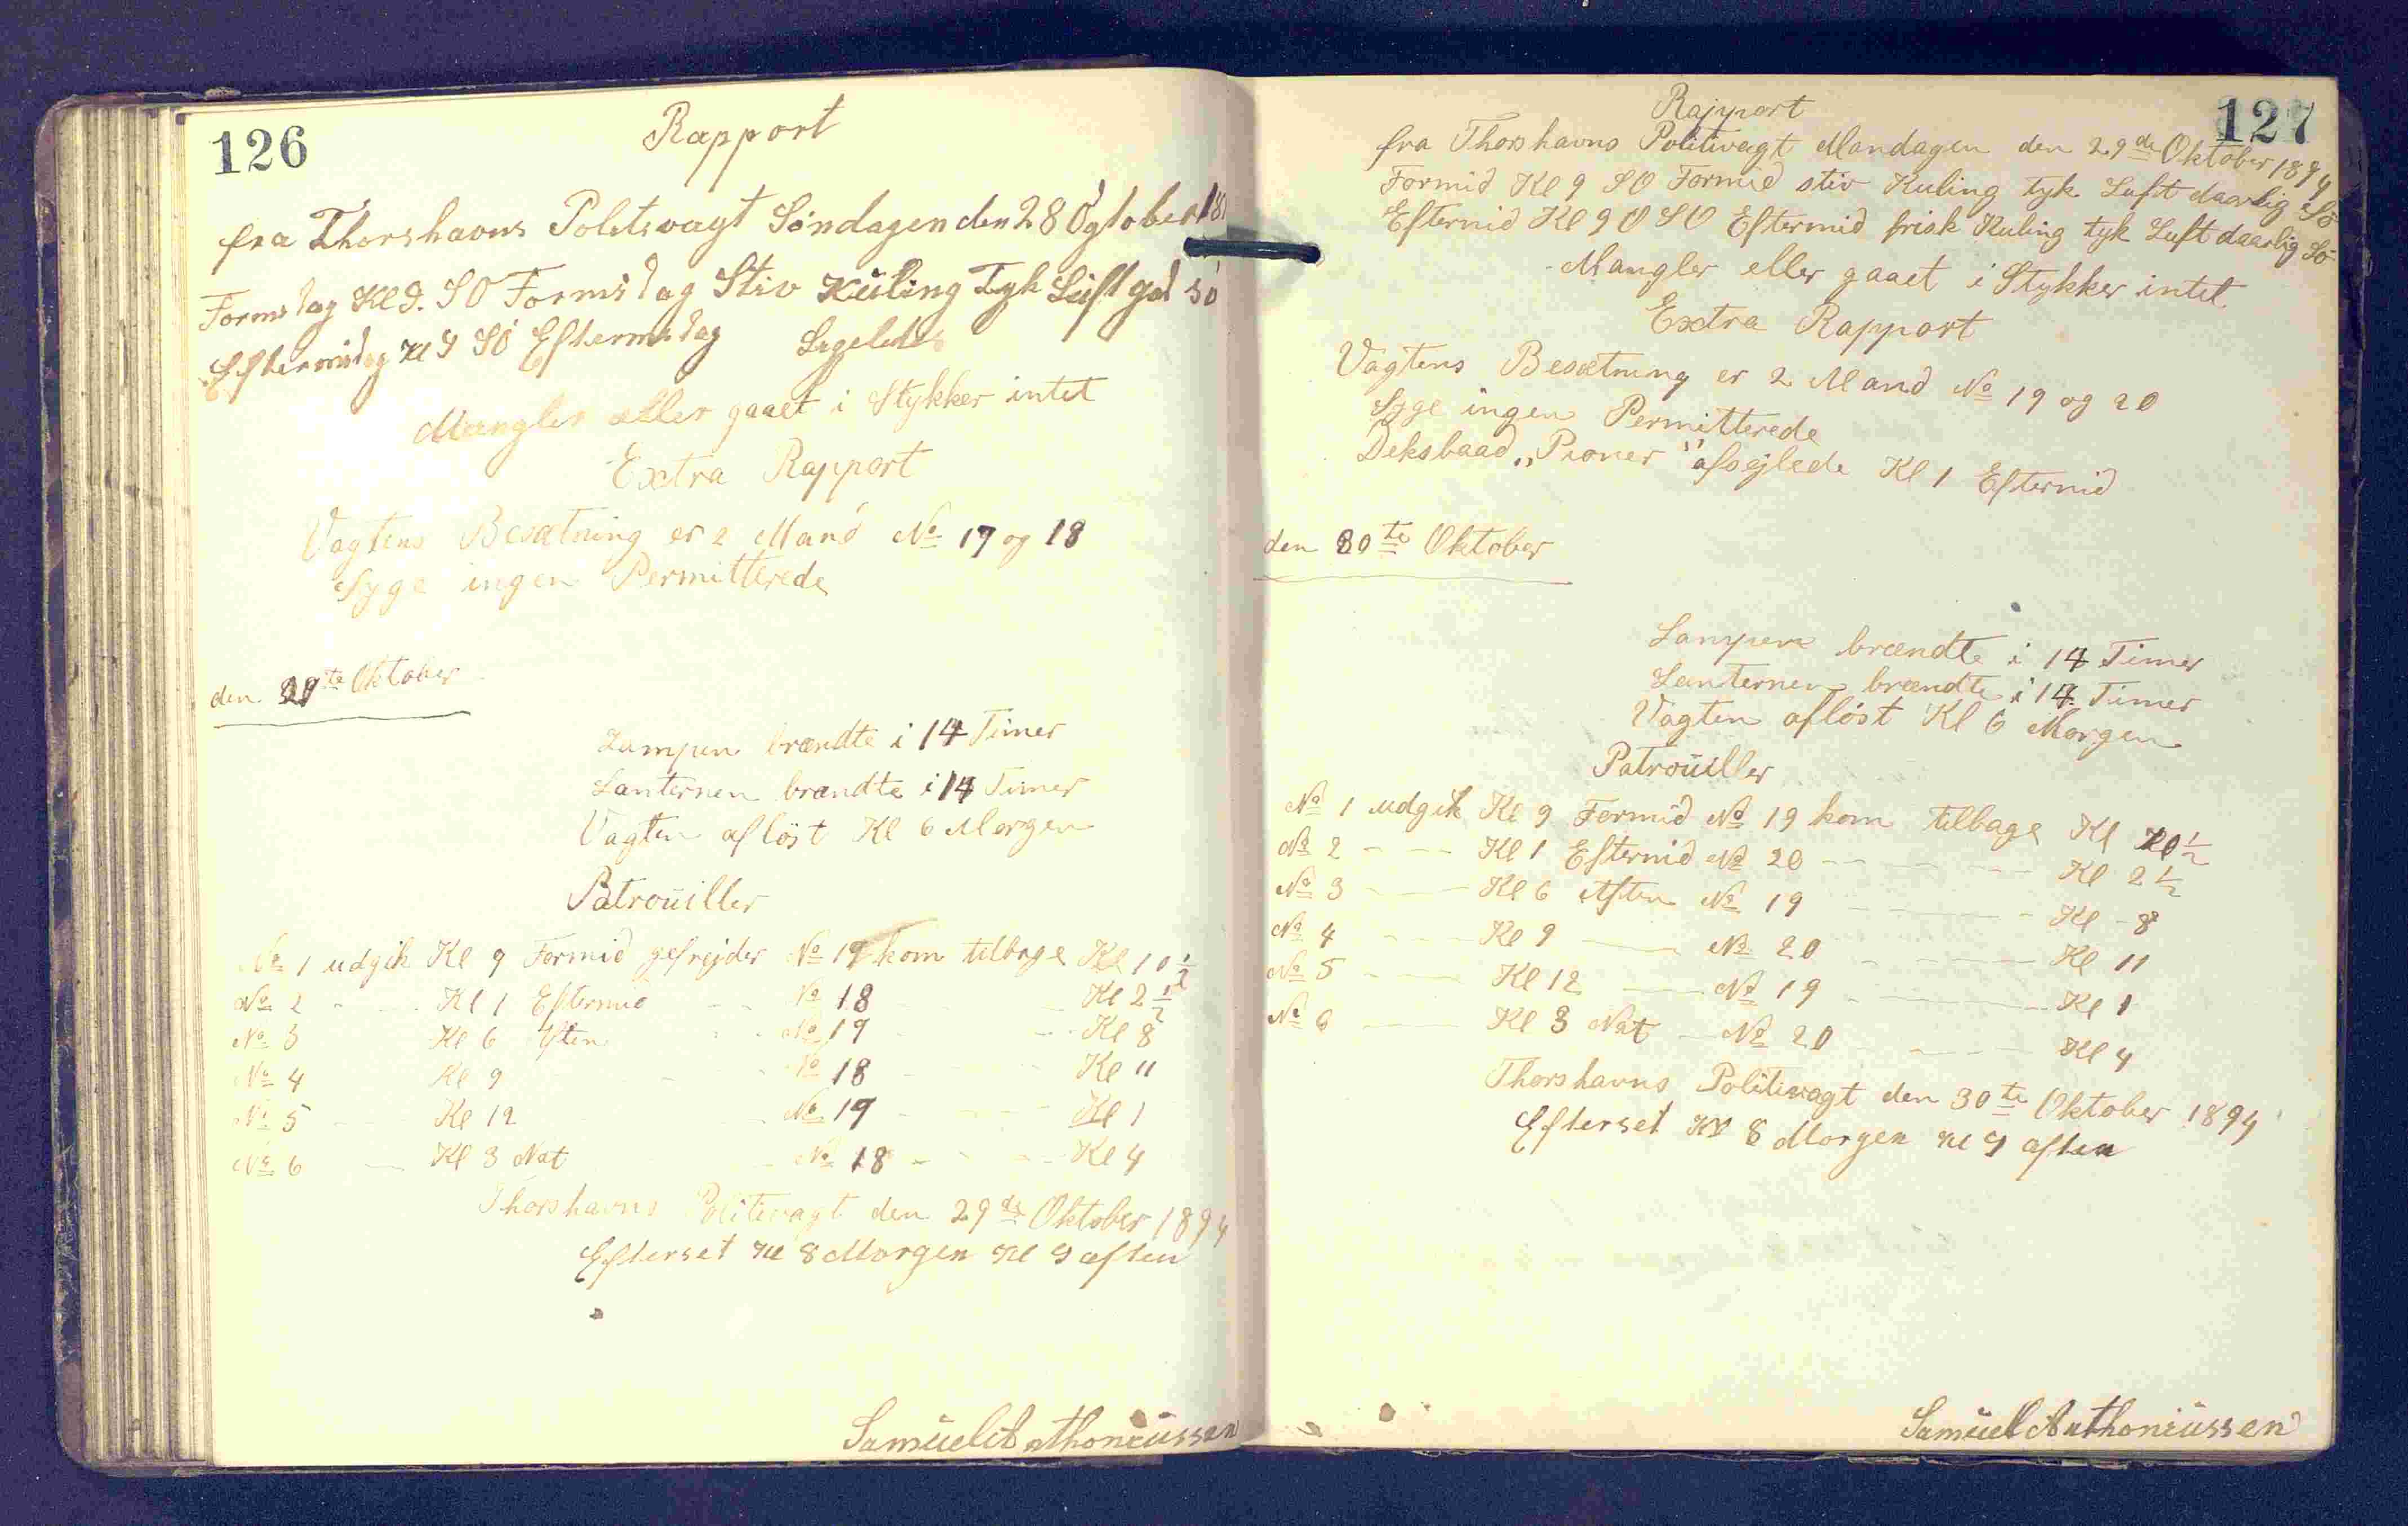 126
Rapport
fra Thorshavns Politivagt Söndagen den 28 Ogtober 18
Formidag Kl 9. SO Formidag Stiv Küling Tyk Luft god sö
Eftermidag Kl 9 SO Eftermidag Ligeledes
Mangler eller gaaet i Stykker intet
Extra Rapport
Vagtens Besætning er 2 Mand No 17 og 18
Syge ingen Permitterede
den 29te Oktober
Lampen brændte i 14 Timer
Lanternen brændte i 14 Timer
Vagten aflöst Kl 6 Morgen
Patroüiller
No 1 udgik Kl 9 Formid gefrejder No 19 kom tilbage Kl 10 1/2
No 2 - - Kl 1 Eftermid - - No 18 - - Kl 2 1/2
No 3 Kl 6 Aften - - No 19 - - Kl 8
No 4 Kl 9 - No 18 - - Kl 11
No 5 - - Kl 12 - No 19 - - - Kl 1
No 6 - Kl 3 Nat - No 18 - - - Kl 4
Thorshavns Politivagt den 29de Oktober 1894
Efterset Kl 8 Morgen Kl 9 aften
Samüel Anthoniüssen
127
Rapport
fra Thorshavns Politivagt Mandagen den 29de Oktober 1894
Formid Kl 9 SO Formid stiv Kuling tyk Luft daarlig Sö
Eftermid Kl 9 O SO Eftermid frisk Kuling tyk Luft daarlig Sö
Mangler eller gaaet i Stykker intet
Extra Rapport
Vagtens Besætning er 2 Mand No 19 og 20
Syge ingen Permitterede
Deksbaad „Pioner" afsejlede Kl 1 Eftermid
den 30te Oktober
Lampen brændte i 14 Timer
Lanternen brændte i 14 Timer
Vagten aflöst Kl 6 Morgen
Patroüiller
No 1 udgik Kl 9 Formid No 19 kom tilbage Kl 10 1/2
No 2 - - - Kl 1 Eftermid No 20 - - - - Kl 2 1/2
No 3 - - Kl 6 Aften No 19 - - - Kl - 8
No 4 - - - Kl 9 - No 20 - - - Kl 11
No 5 - - - Kl 12 - No 19 - - - Kl 1
No 6 - - Kl 3 Nat - No 20 - - - - Kl 4
Thorshavns Politivagt den 30te Oktober 1894
Efterset Kl 8 Morgen Kl 9 aften
Samüel Anthoniüssen